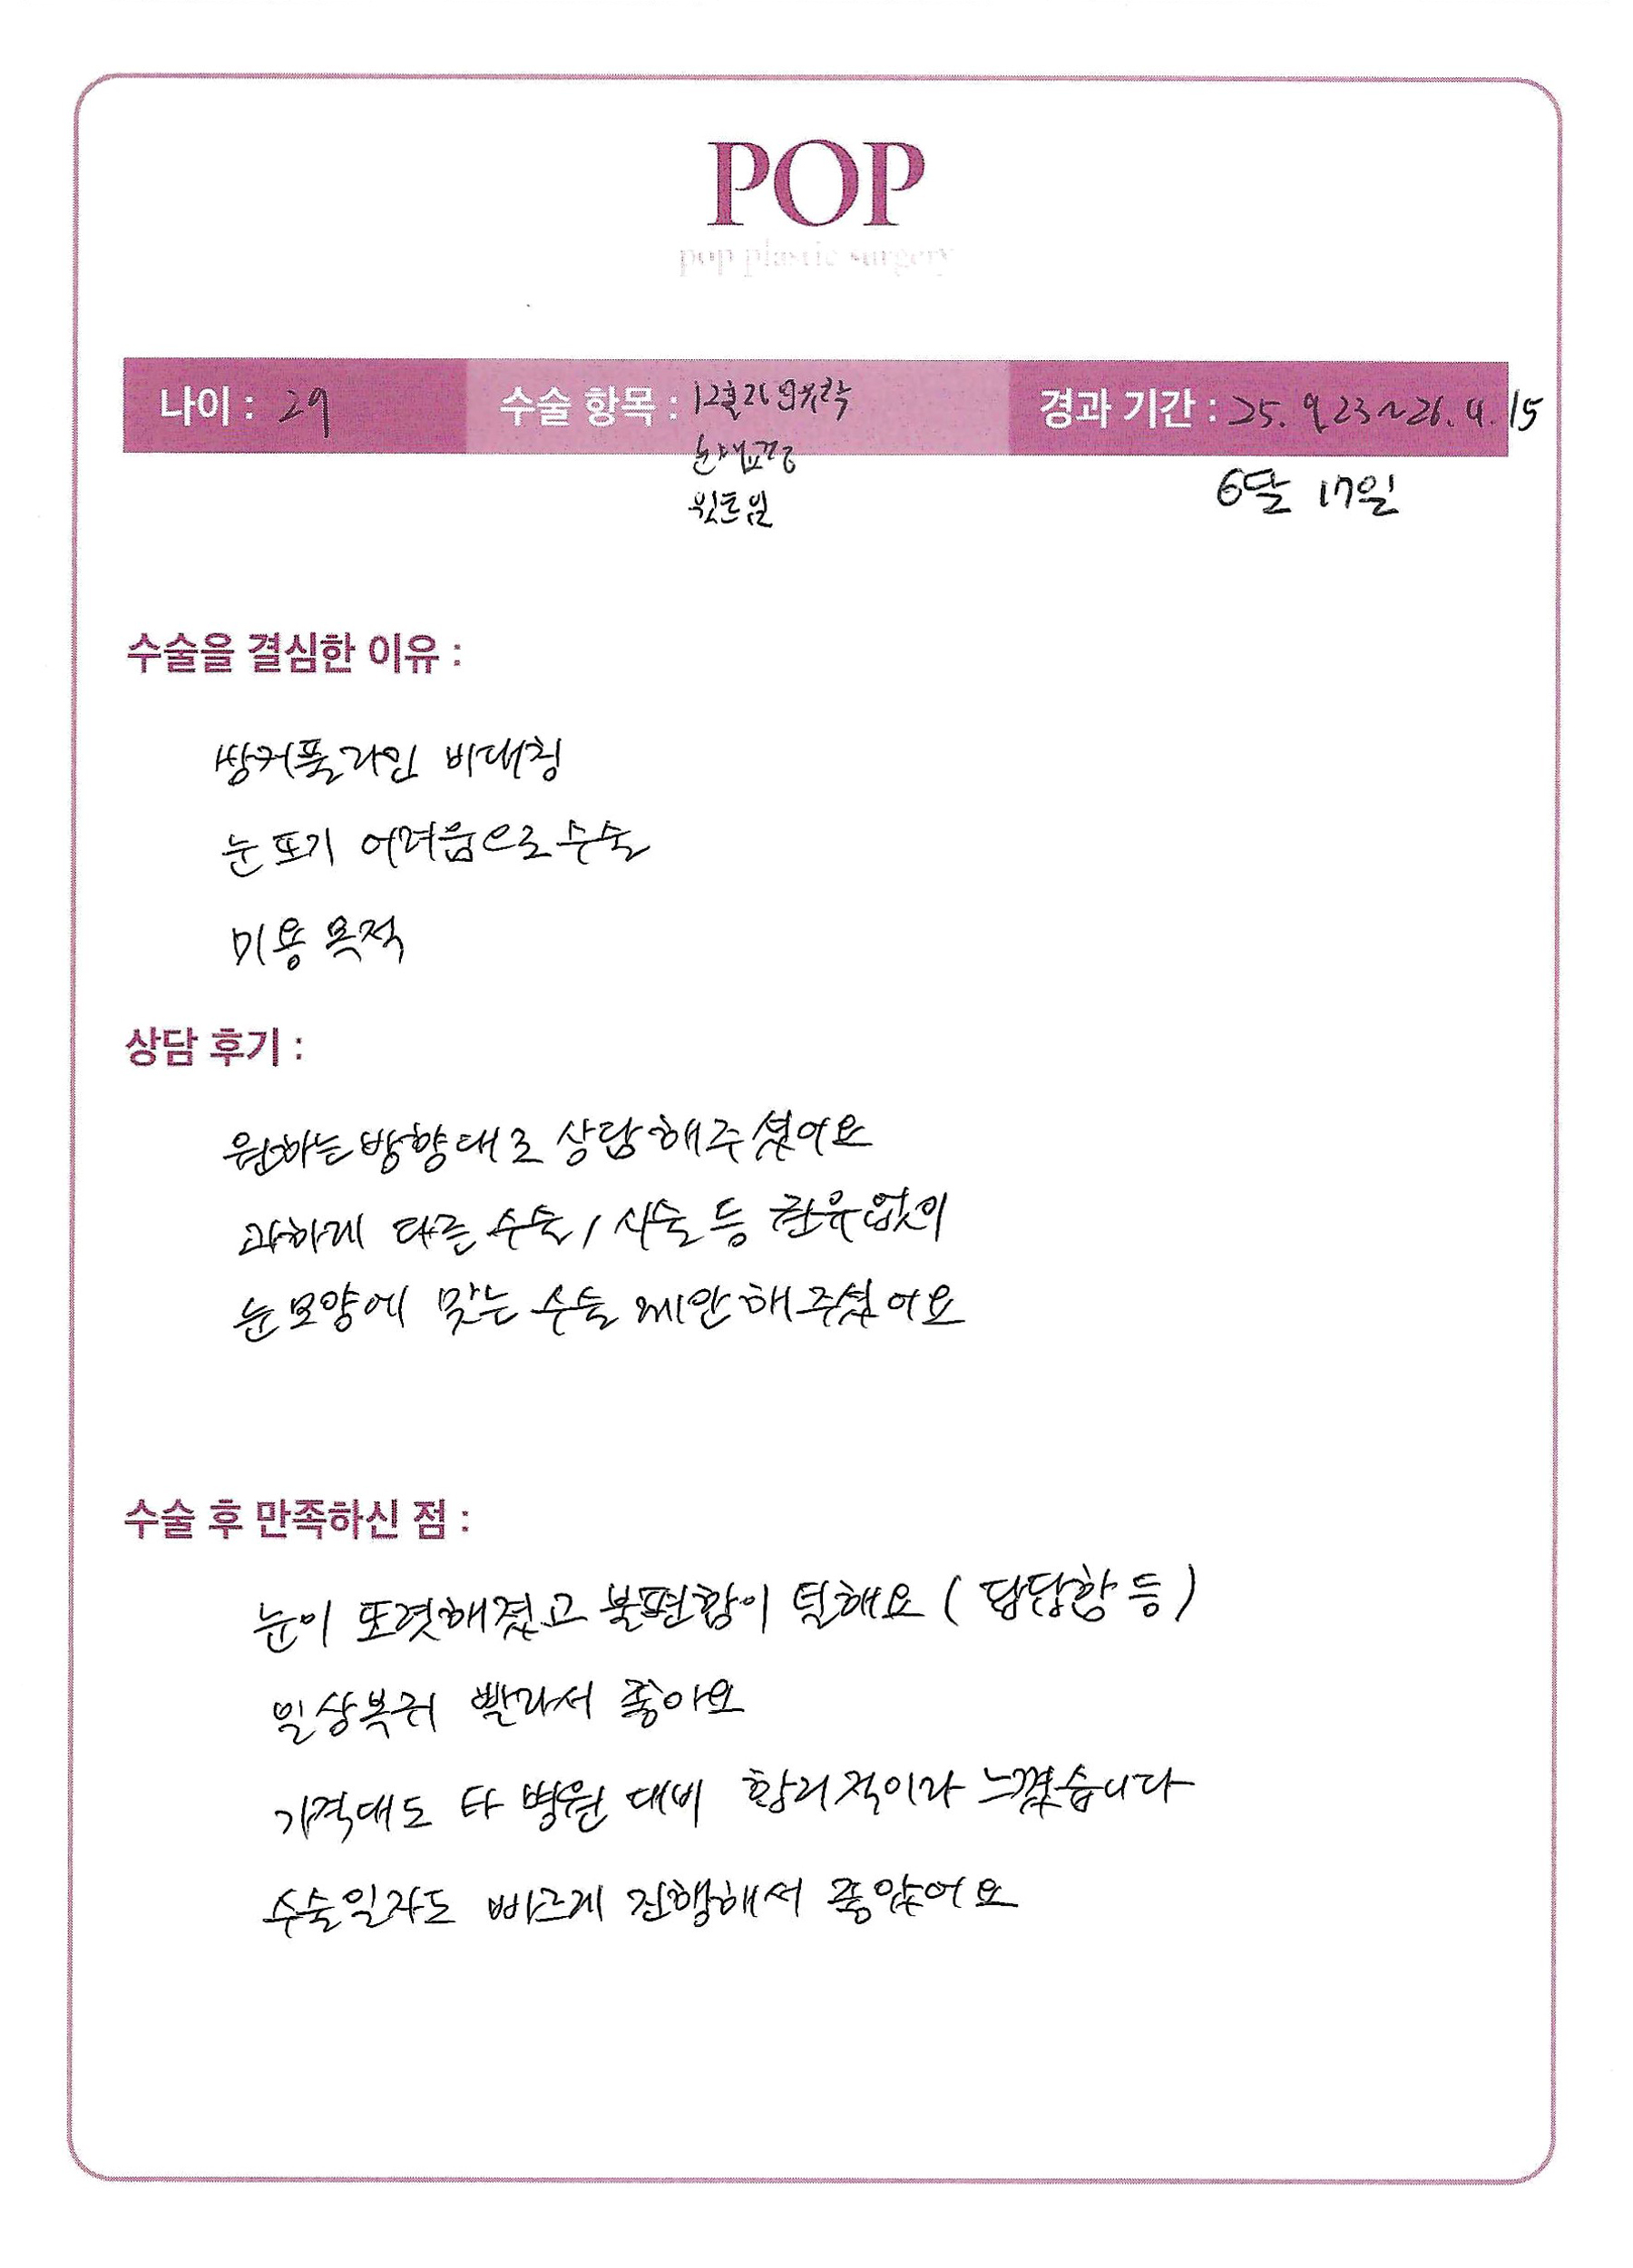 POP
pop plastic surgery
나이 : 29
수술 항목 :
눈매교정
윗트임
경과 기간 : 25. 9. 23 ~ 26. 4. 15
6달 17일
수술을 결심한 이유 :
쌍커풀라인 비대칭
눈 뜨기 어려움으로 수술
미용 목적
상담 후기 :
원하는 방향대로 상담해주셨어요
과하게 다른 수술 / 시술 등 권유없이
눈모양에 맞는 수술 제안해주셨어요
수술 후 만족하신 점 :
눈이 또렷해졌고 불편함이 덜해요 ( 답답함 등 )
일상복귀 빨라서 좋아요
가격대도 타 병원 대비 합리적이라 느꼈습니다
수술일자도 빠르게 진행해서 좋았어요